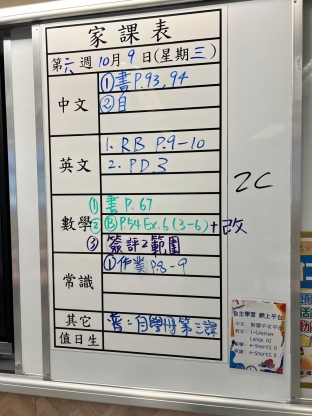 家課表
第六週10月9日(星期三)
中文
①書P.93,94
②自
英文
1. RB P.9-10
2. PD.3
2C
數學
①書 P.67
②ⒷP.54 Ex.6(3-6)+改
③簽評2範圍
常識
①作業P.8-9
其它
普:自學冊第三課
值日生
自主學習 網上平台